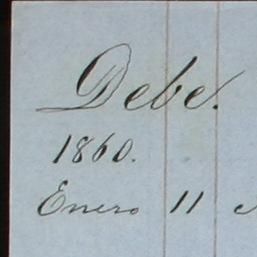 Debe.
1860.
Enero 11